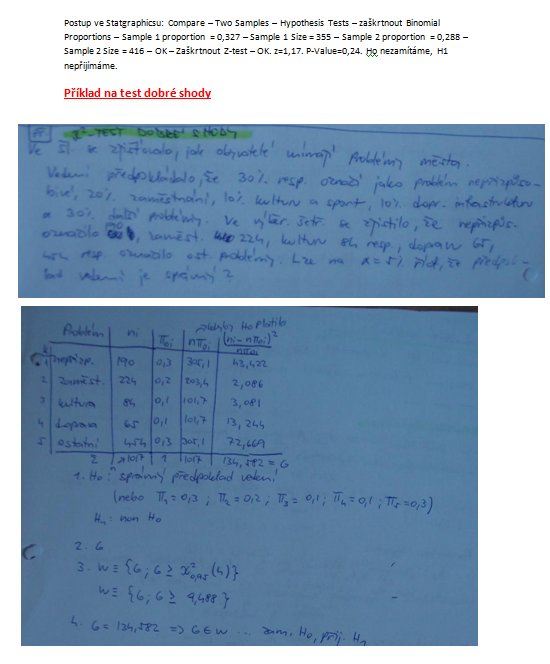 Postup ve Statgraphicsu: Compare – Two Samples – Hypothesis Tests – zaškrtnout Binomial
Proportions – Sample 1 proportion = 0,327 – Sample 1 Size = 355 – Sample 2 proportion = 0,288 –
Sample 2 Size = 416 – OK – Zaškrtnout Z-test – OK. z=1,17. P-Value=0,24. Ho nezamítáme, H1
nepřijímáme.
Příklad na test dobré shody
χ²-TEST DOBRÉ SHODY
Ve šl. se zjišťovalo, jak obyvatelé vnímají problémy města.
Vedení předpokládalo, že 30% resp. označí jako problém nepřizpůso-
bivé, 20% zaměstnání, 10% kulturu a sport, 10% dopr. infrastrukturu
a 30% další problémy. Ve výběr. šetř. se zjistilo, že nepřizpůs.
označilo 190, zaměst. 224, kulturu 84 resp., dopravu 65,
454 resp. označilo ost. problémy. Lze na α = 5% říct, že předpo-
klad vedení je správný?
Problém ni π0i nπ0i kdyby H0 platila (ni - nπ0i)² / nπ0i
1 nepřizp. 190 0,3 305,1 43,422
2 zaměst. 224 0,2 203,4 2,086
3 kultura 84 0,1 101,7 3,081
4 doprava 65 0,1 101,7 13,244
5 ostatní 454 0,3 305,1 72,669
Σ 1017 1 1017 134,582 = G
1. H0: správný předpoklad vedení
(nebo π1 = 0,3 ; π2 = 0,2 ; π3 = 0,1 ; π4 = 0,1 ; π5 = 0,3)
H1: non H0
2. G
3. W ≡ {G; G ≥ χ²0,95 (4)}
W ≡ {G; G ≥ 9,488}
4. G = 134,582 => G ∈ W ... zam. H0, přij. H1